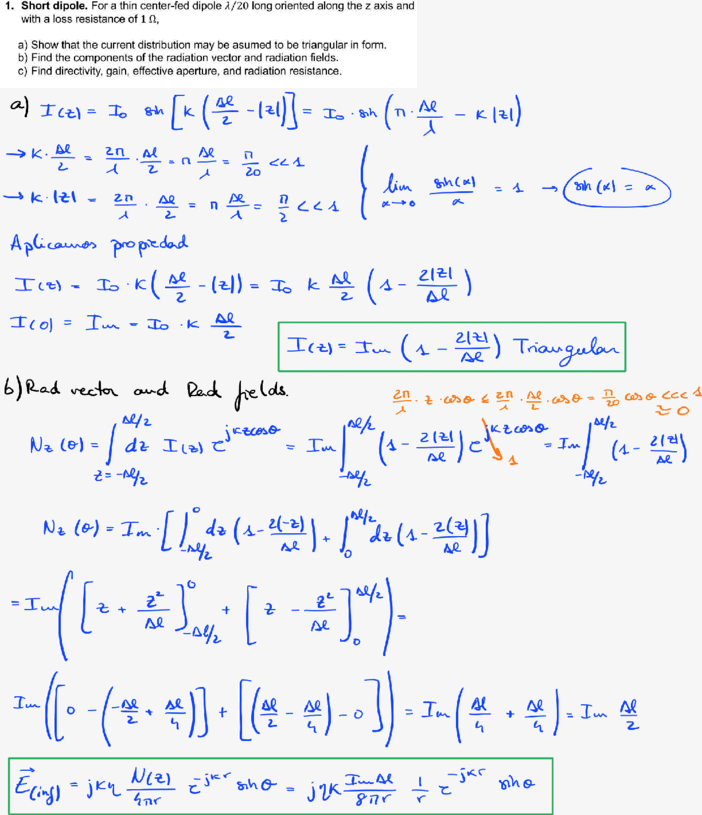 1. Short dipole. For a thin center-fed dipole λ/20 long oriented along the z axis and
with a loss resistance of 1 Ω,
a) Show that the current distribution may be asumed to be triangular in form.
b) Find the components of the radiation vector and radiation fields.
c) Find directivity, gain, effective aperture, and radiation resistance.
a) I(z) = I₀ sin [K (Δl/2 - |z|)] = I₀ · sin (π · Δl/λ - K|z|)
→ K · Δl/2 = 2π/λ · Δl/2 = π Δl/λ = π/20 << 1
→ K · |z| = 2π/λ · Δl/2 = π Δl/λ = π/2 << 1
lim α→0 sin(α)/α = 1 → sin(α) = α
Aplicamos propiedad
I(z) = I₀ · K (Δl/2 - |z|) = I₀ K Δl/2 (1 - 2|z|/Δl)
I(0) = Im = I₀ · K Δl/2
I(z) = Im (1 - 2|z|/Δl) Triangular
b) Rad vector and Rad fields.
2π/λ · z · cosθ ≤ 2π/λ · Δl/2 · cosθ = π/20 cosθ <<< 1
≈ 0
Nz(θ) = ∫_{z=-Δl/2}^{Δl/2} dz I(z) e^{jKzcosθ} = Im ∫_{-Δl/2}^{Δl/2} (1 - 2|z|/Δl) e^{jKzcosθ} = Im ∫_{-Δl/2}^{Δl/2} (1 - 2|z|/Δl)
1
Nz(θ) = Im · [∫_{-Δl/2}^{0} dz (1 - 2(-z)/Δl) + ∫_{0}^{Δl/2} dz (1 - 2(z)/Δl)]
= Im ([z + z²/Δl]_{-Δl/2}^{0} + [z - z²/Δl]_{0}^{Δl/2}) =
Im ([0 - (-Δl/2 + Δl/4)] + [(Δl/2 - Δl/4) - 0]) = Im (Δl/4 + Δl/4) = Im Δl/2
E⃗(ing) = jKη N(z)/4πr e^{-jKr} sinθ = jηK ImΔl/8πr 1/r e^{-jKr} sinθ